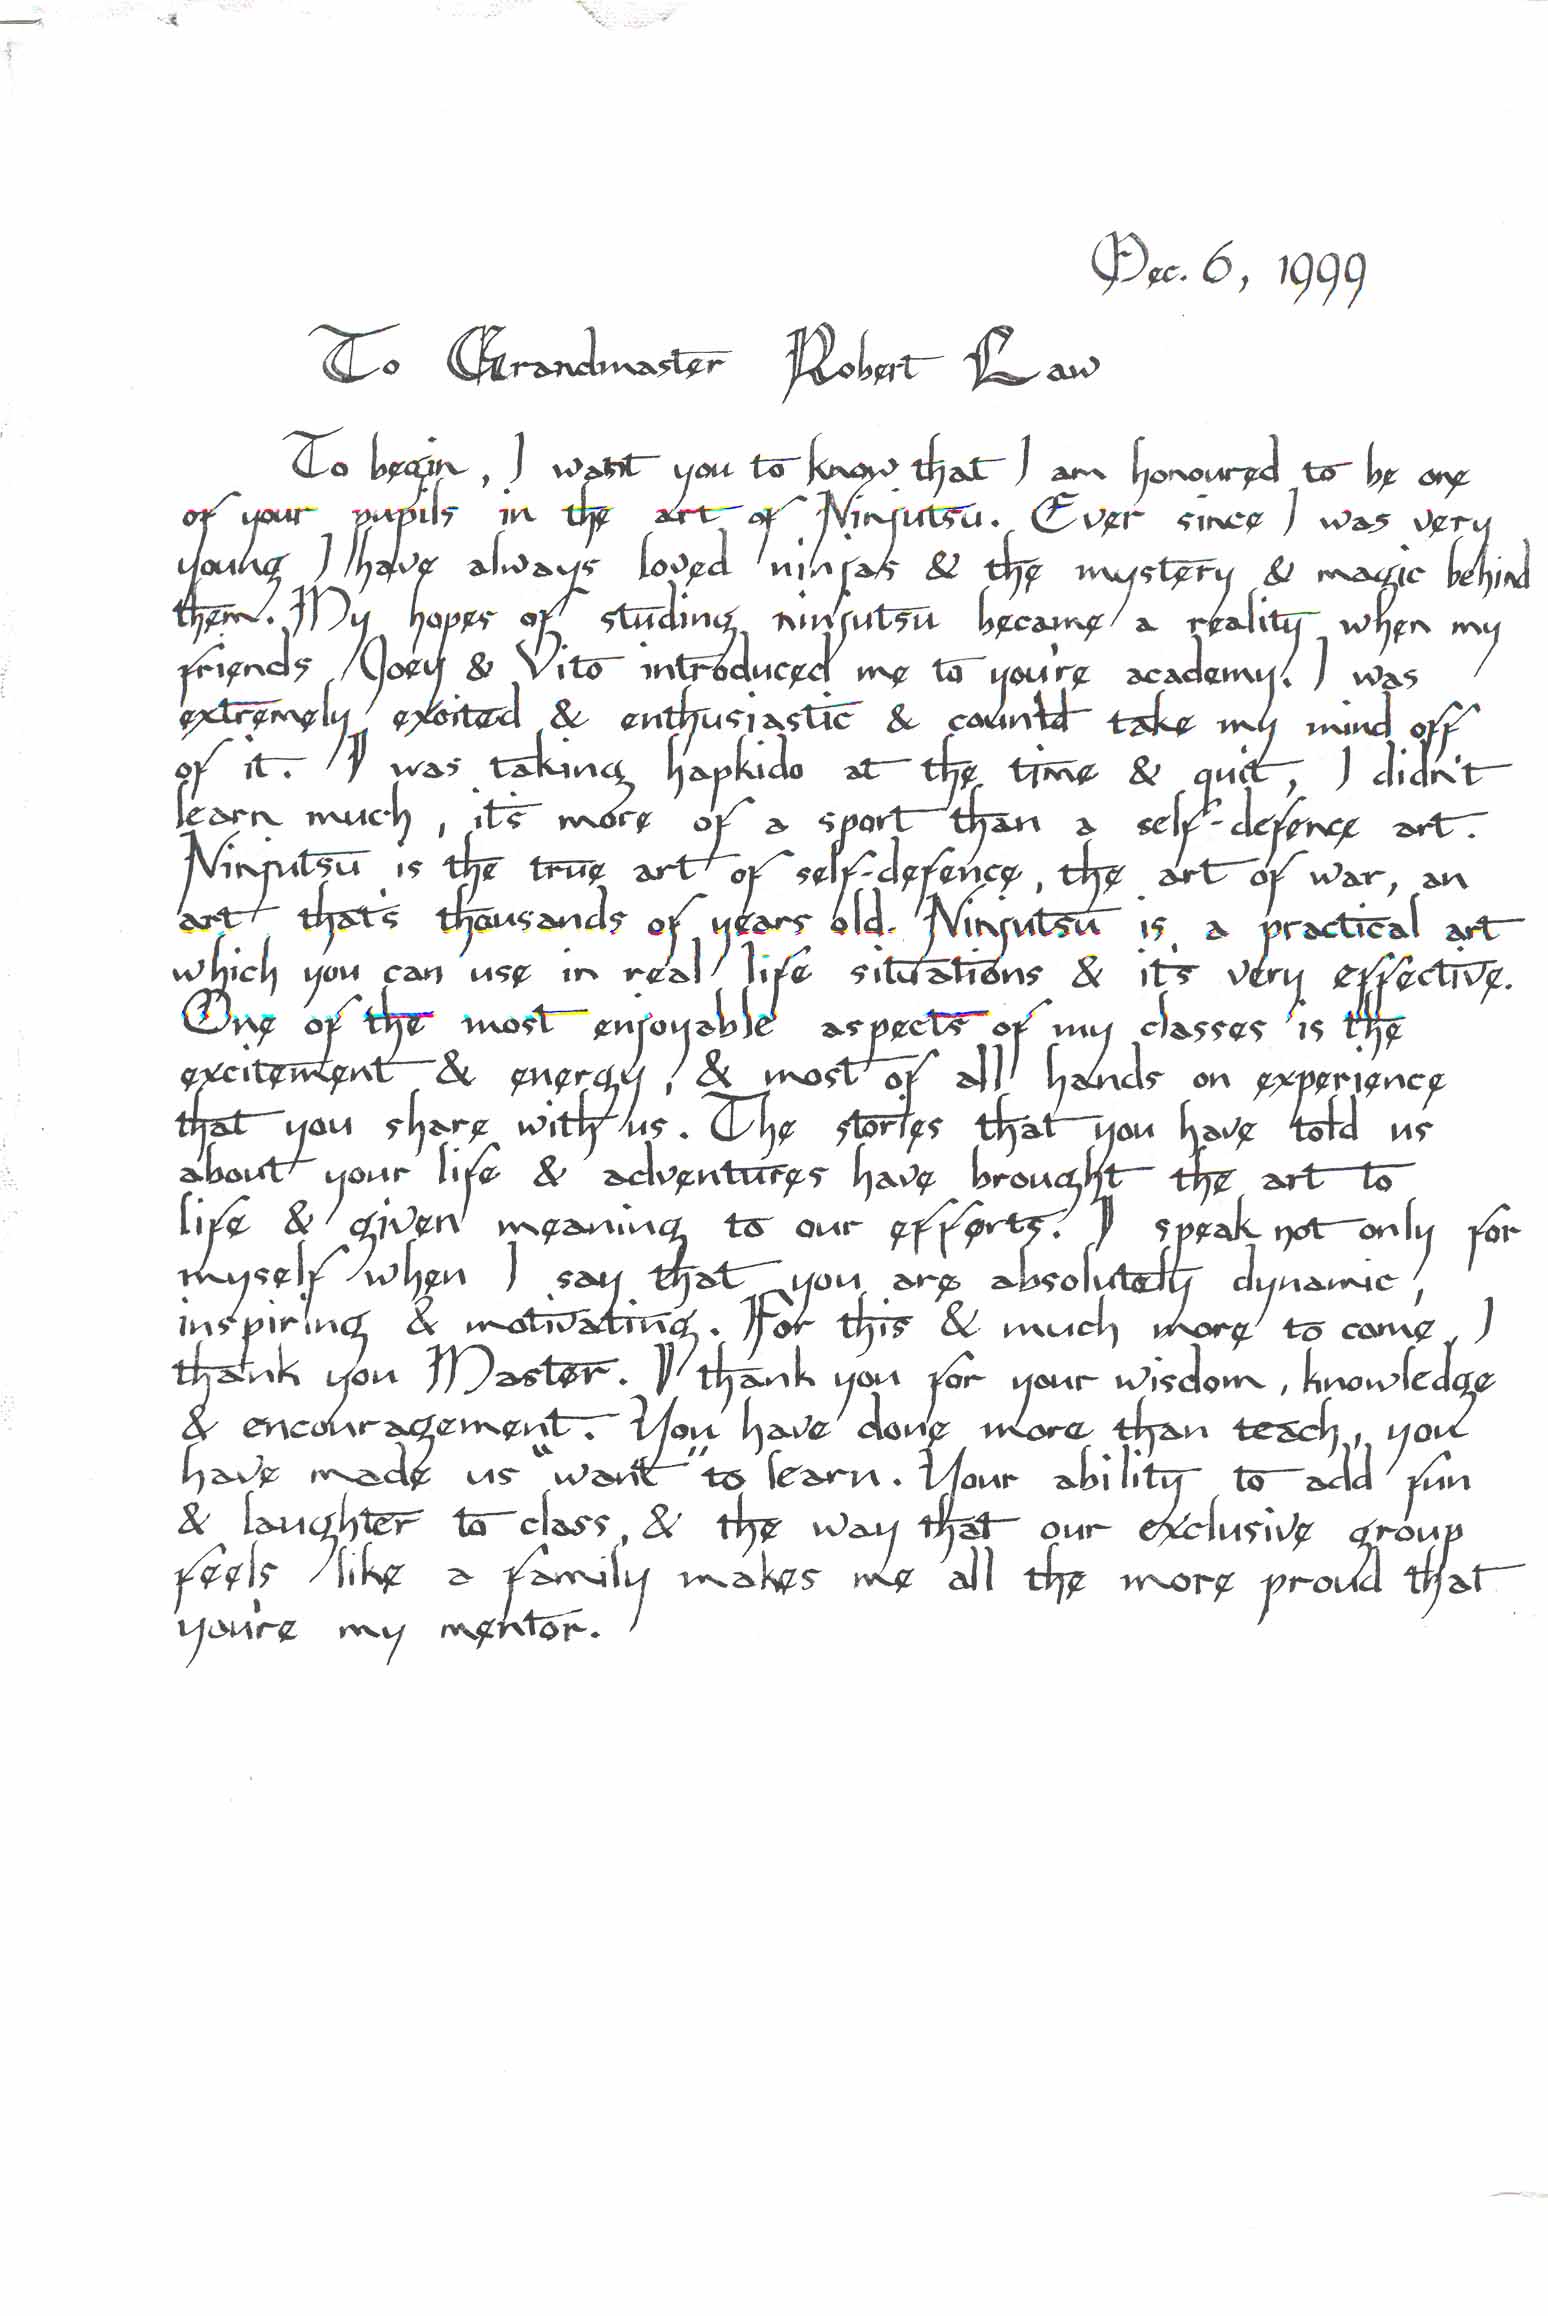 Dec. 6, 1999
To Grandmaster Robert Law
To begin, I want you to know that I am honoured to be one
of your pupils in the art of Ninjutsu. Ever since I was very
young I have always loved ninjas & the mystery & magic behind
them. My hopes of studing ninjutsu became a reality when my
friends Joey & Vito introduced me to you're academy. I was
extremely excited & enthusiastic & coun'td take my mind off
of it. I was taking hapkido at the time & quit, I didn't
learn much, it's more of a sport than a self-defence art.
Ninjutsu is the true art of self-defence, the art of war, an
art that's thousands of years old. Ninjutsu is a practical art
which you can use in real life situations & it's very effective.
One of the most enjoyable aspects of my classes is the
excitement & energy, & most of all hands on experience
that you share with us. The stories that you have told us
about your life & adventures have brought the art to
life & given meaning to our efforts. I speak not only for
myself when I say that you are absolutely dynamic,
inspiring & motivating. For this & much more to come, I
thank you Master. I thank you for your wisdom, knowledge
& encouragement. You have done more than teach, you
have made us "want" to learn. Your ability to add fun
& laughter to class, & the way that our exclusive group
feels like a family makes me all the more proud that
you're my mentor.